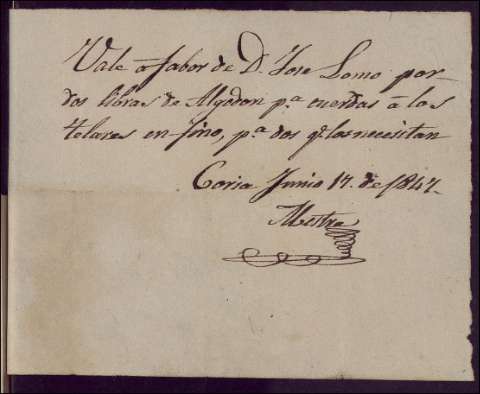 Vale á fabor de D. Jose Lomo por
dos libras de Algodon p.a cuerdas á los
telares en fino, p.a dos q.e los necesitan
Coria Junio 17. de 1847.
Mestre